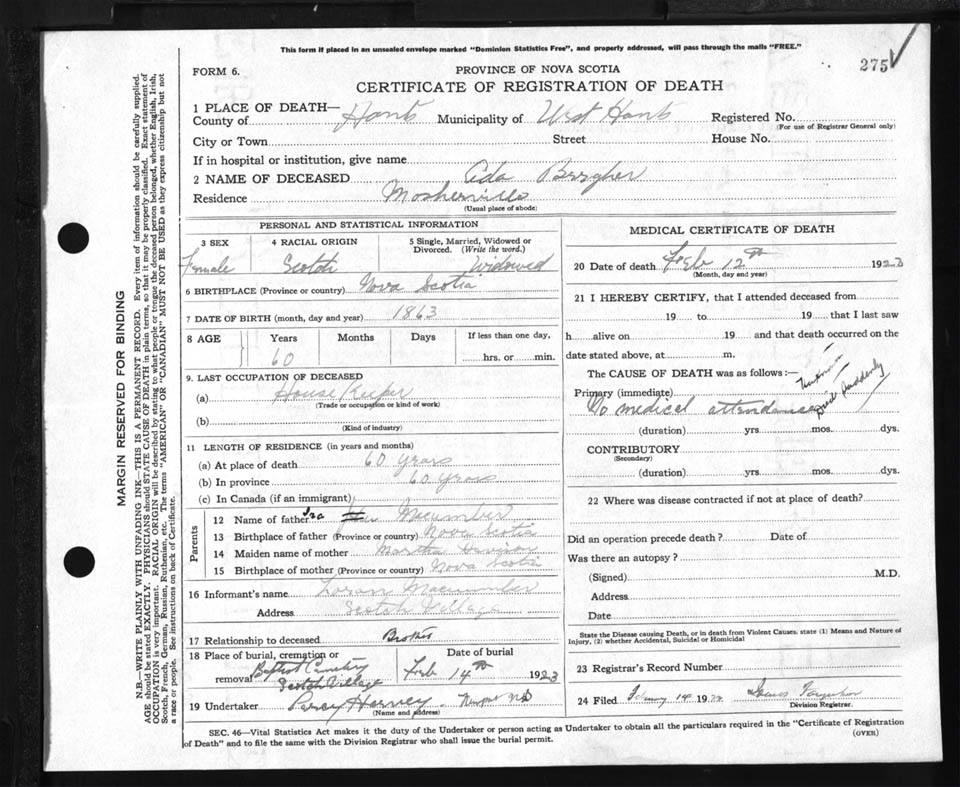 This form if placed in an unsealed envelope marked "Dominion Statistics Free", and properly addressed, will pass through the mails "FREE."
275
FORM 6.
PROVINCE OF NOVA SCOTIA
CERTIFICATE OF REGISTRATION OF DEATH
1 PLACE OF DEATH—
County of Hants Municipality of West Hants Registered No.
(For use of Registrar General only)
City or Town Street House No.
If in hospital or institution, give name
2 NAME OF DECEASED Ada
Residence Mosherville
(Usual place of abode)
PERSONAL AND STATISTICAL INFORMATION
3 SEX 4 RACIAL ORIGIN 5 Single, Married, Widowed or Divorced. (Write the word.)
Female Scotch Widowed
6 BIRTHPLACE (Province or country) Nova Scotia
7 DATE OF BIRTH (month, day and year) 1863
8 AGE Years Months Days If less than one day,
60 hrs. or min.
9. LAST OCCUPATION OF DECEASED
(a) House Keeper
(Trade or occupation or kind of work)
(b)
(Kind of industry)
11 LENGTH OF RESIDENCE (in years and months)
(a) At place of death 60 years
(b) In province 60 years
(c) In Canada (if an immigrant)
Parents
12 Name of father Ira Macumber
13 Birthplace of father (Province or country) Nova Scotia
14 Maiden name of mother Martha
15 Birthplace of mother (Province or country) Nova Scotia
16 Informant's name Loran Macumber
Address Scotch Village
17 Relationship to deceased Brother
18 Place of burial, cremation or removal Baptist Cemetery Scotch Village
Date of burial
Feb 14th 1923
19 Undertaker Percy Harvey Newport NS
(Name and address)
MEDICAL CERTIFICATE OF DEATH
20 Date of death Feb 12th 1923
(Month, day and year)
21 I HEREBY CERTIFY, that I attended deceased from
19 to 19 that I last saw
h alive on 19 and that death occurred on
date stated above, at m.
The CAUSE OF DEATH was as follows:—
Primary (immediate) Unknown
No medical attendance Died Suddenly
(duration) yrs. mos. dys.
CONTRIBUTORY
(Secondary)
(duration) yrs. mos. dys.
22 Where was disease contracted if not at place of death?
Did an operation precede death? Date of
Was there an autopsy?
(Signed) M.D.
Address
Date
State the Disease causing Death, or in death from Violent Causes, state (1) Means and Nature of
Injury, (2) whether Accidental, Suicidal or Homicidal
23 Registrar's Record Number
24 Filed 14 19
Division Registrar.
SEC. 46—Vital Statistics Act makes it the duty of the Undertaker or person acting as Undertaker to obtain all the particulars required in the "Certificate of Registration
of Death" and to file the same with the Division Registrar who shall issue the burial permit.
(OVER)
MARGIN RESERVED FOR BINDING
N.B.—WRITE PLAINLY WITH UNFADING INK—THIS IS A PERMANENT RECORD. Every item of information should be carefully supplied.
AGE should be stated EXACTLY. PHYSICIANS should STATE CAUSE OF DEATH in plain terms, so that it may be properly classified. Exact statement of
OCCUPATION is very important. RACIAL ORIGIN will be described by stating to what people or tongue the deceased person belonged, whether English, Irish,
Scotch, French, German, Russian, Ruthenian, etc. The terms "AMERICAN" OR "CANADIAN" MUST NOT BE USED as they express citizenship but not
a race or people. See instructions on back of Certificate.